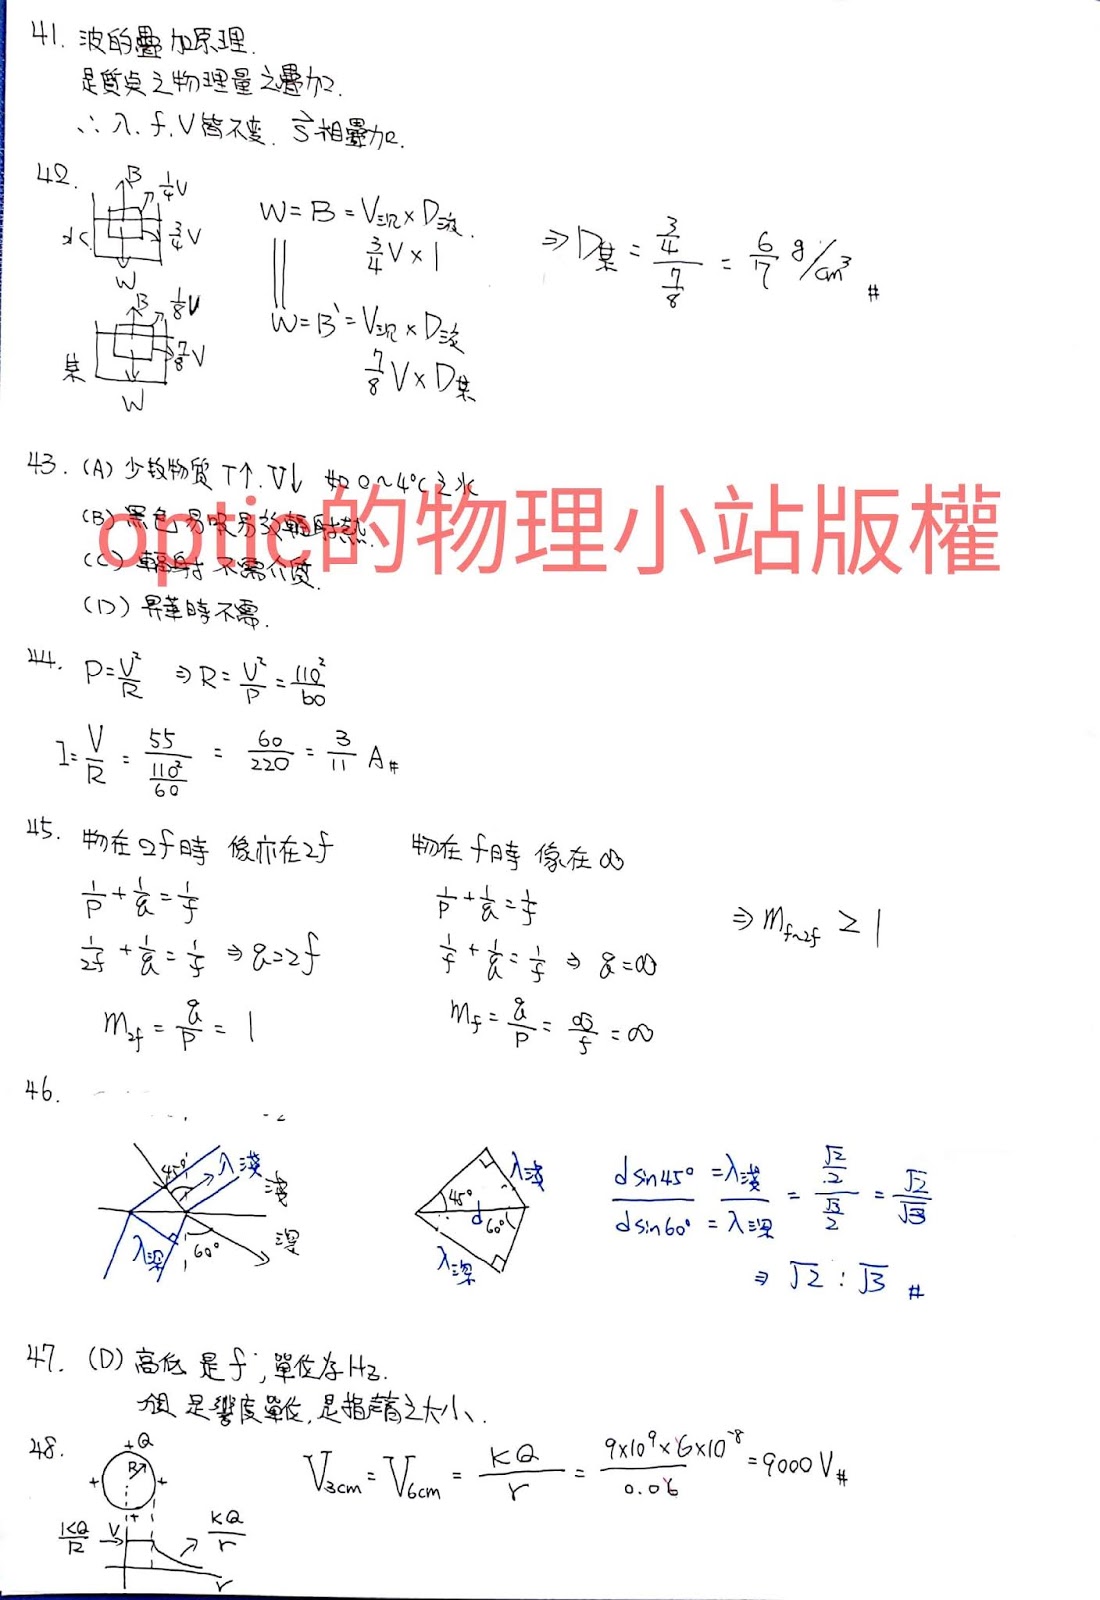 41. 波的疊加原理.
是質点之物理量之疊加.
∴ λ. f. V 皆不变. S⃗相疊加.
42.
B 1/4V
水 3/4V
W
B 1/8V
某 7/8V
W
W = B = V沉 × D液.
3/4 V × 1
||
W = B' = V沉 × D液
7/8 V × D某
⇒ D某 = (3/4)/(7/8) = 6/7 g/cm³ #
43. (A) 少数物質 T↑. V↓ 如 0~4°C 之水
(B) 黑色易吸易放輻射熱.
(C) 輻射不需介質.
(D) 昇華時不需.
optic的物理小站版權
44. P = V²/R ⇒ R = V²/P = 110²/60
I = V/R = 55/(110²/60) = 60/220 = 3/11 A #
45. 物在 2f 時 像亦在 2f
1/p + 1/q = 1/f
1/2f + 1/q = 1/f ⇒ q = 2f
m2f = q/p = 1
物在 f 時 像在 ∞
1/p + 1/q = 1/f
1/f + 1/q = 1/f ⇒ q = ∞
mf = q/p = ∞/f = ∞
⇒ mf~2f ≥ 1
46.
45° λ淺 淺
λ深 60° 深
45° d 60° λ淺
λ深
d sin45° = λ淺
d sin60° = λ深
= (√2/2)/(√3/2) = √2/√3
⇒ √2 : √3 #
47. (D) 高低是 f, 單位為 Hz.
分貝是響度單位, 是指聲音之大小.
48.
+Q
+ R +
+
KQ/R → V KQ/r
r
V3cm = V6cm = KQ/r = 9×10⁹×6×10⁻⁸/0.06 = 9000 V #